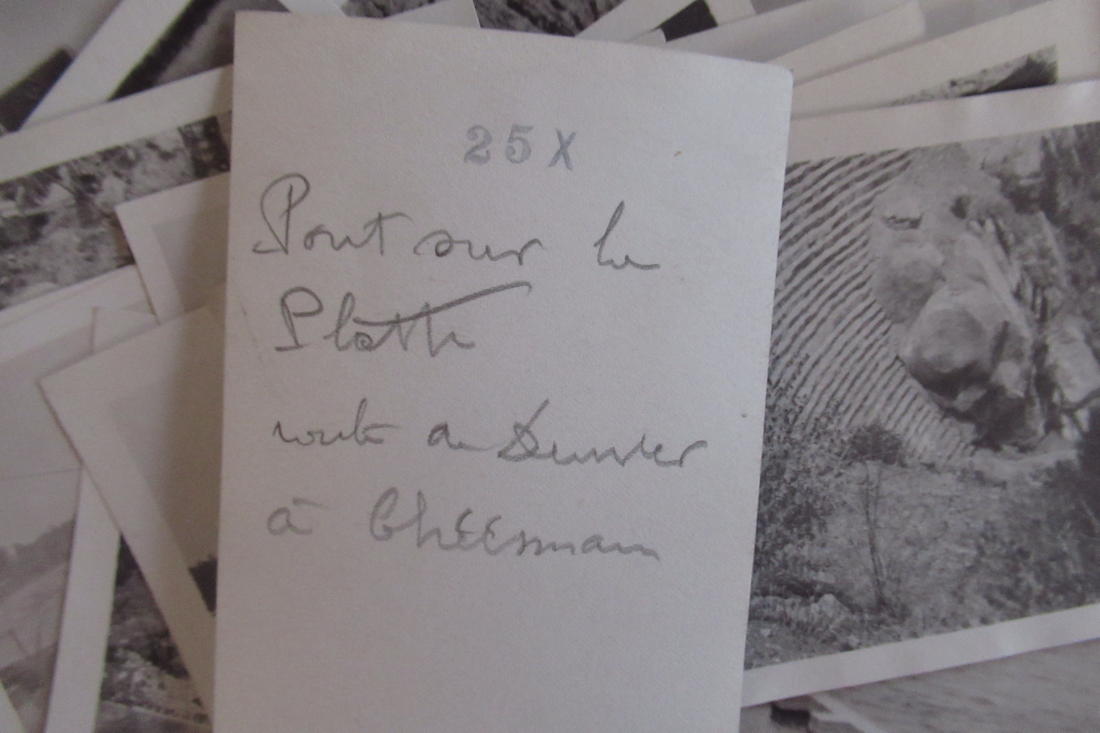 25X
Pont sur la
Platte
route de Denver
à Cheesman